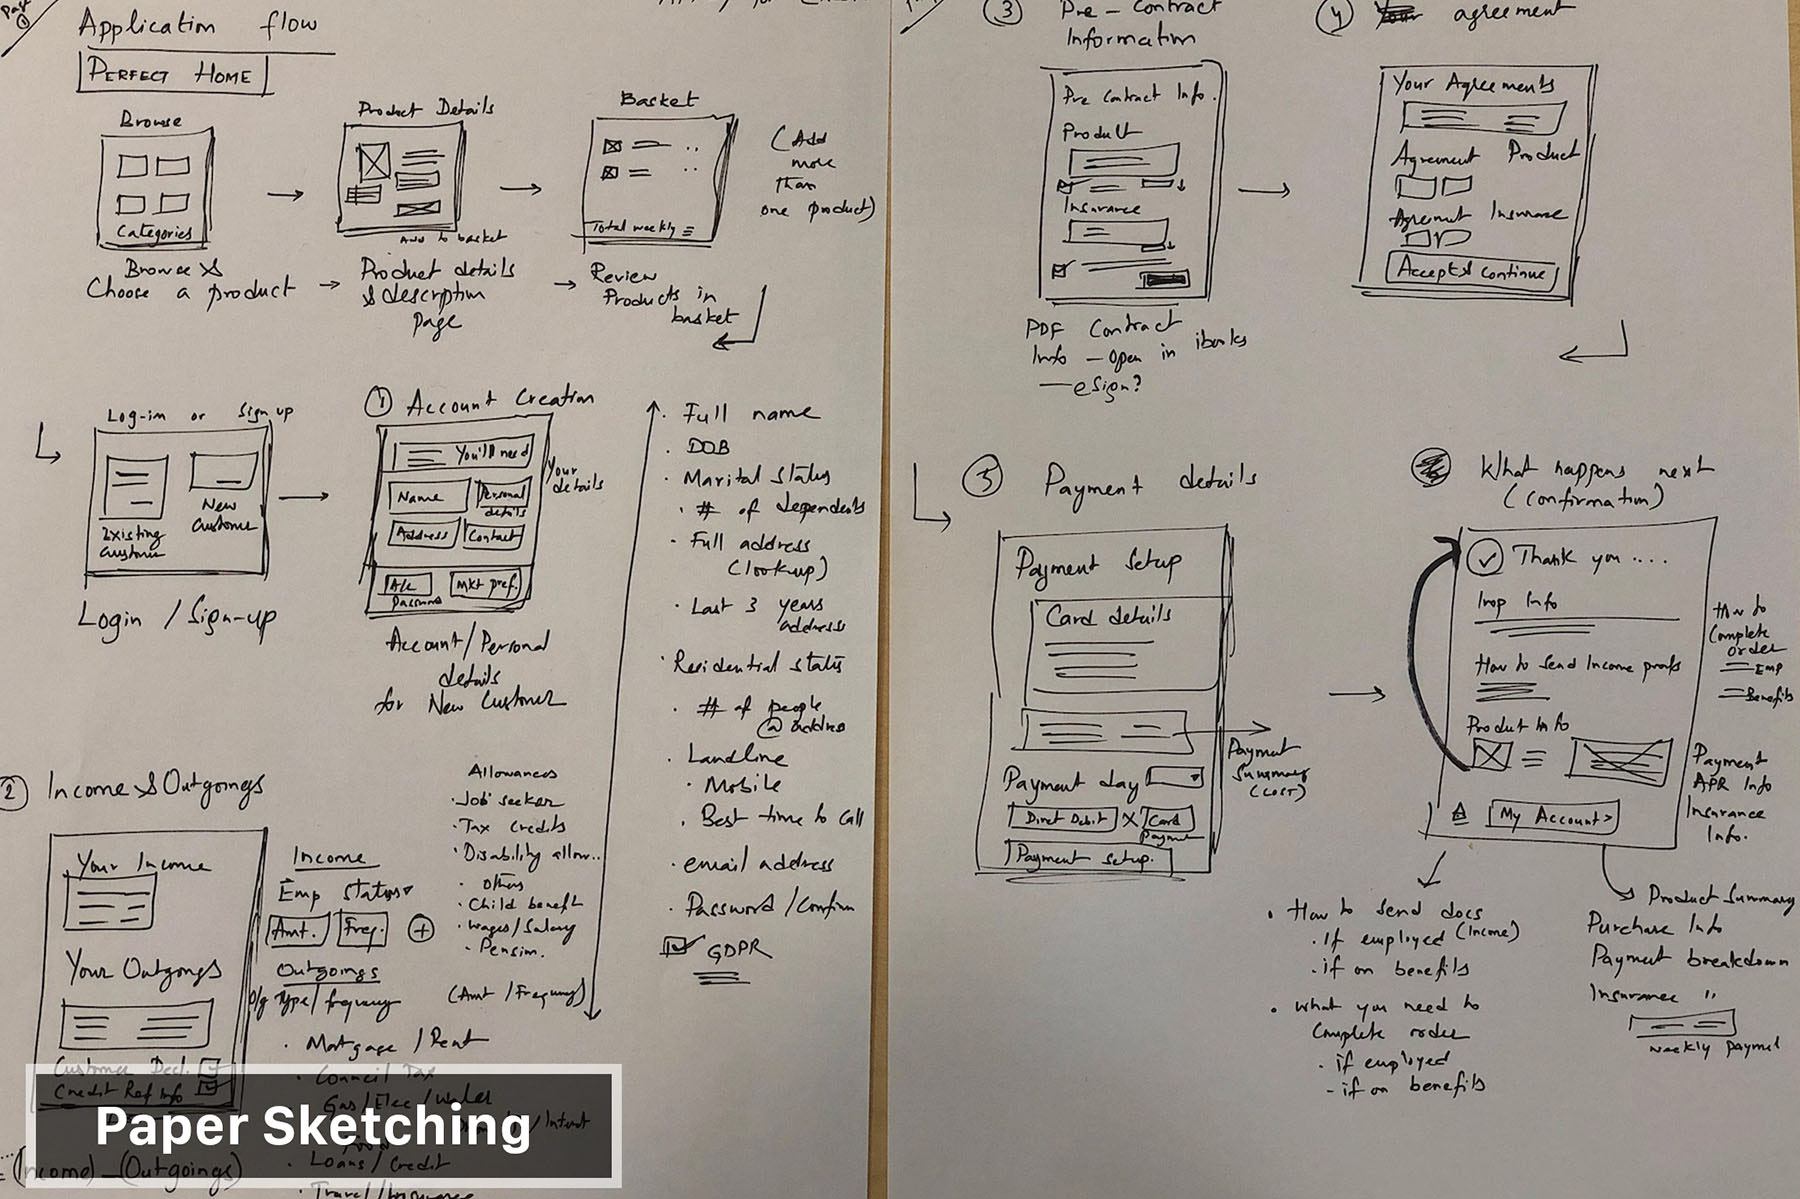 Page
①
Application flow
PERFECT HOME
Browse
Categories
Browse &
Choose a product
Product Details
Add to basket
Product details
& description
page
Basket
Total weekly
Review
Products in
basket
(Add
more
than
one product)
Log-in or Sign up
Existing
Customer
New
Customer
Login / Sign-up
① Account Creation
You'll need
Name
Personal
details
Address
Contact
A/c
Password
Mkt pref.
Your
details
Account/Personal
details
for New Customer
· Full name
· DOB
· Marital status
· # of dependents
· Full address
(lookup)
· Last 3 years
address
· Residential status
· # of people
@ address
· Landline
· Mobile
· Best time to call
· email address
· Password/Confirm
GDPR
② Income & Outgoings
Your Income
Your Outgoings
Customer Decl.
Credit Ref Info
= (Income) - (Outgoings)
Income
Emp Status
Amt.
Freq.
+
Outgoings
O/g Type/frequency
(Amt/Frequency)
Allowances
· Job seeker
· Tax credits
· Disability allow..
· others
· Child benefit
· Wages/Salary
· Pension.
· Mortgage / Rent
· Council Tax
Gas/Elec/Water
Food
· Loans/Credit
· Travel/Insurance
Paper Sketching
③ Pre-Contract
Information
Pre Contract Info.
Product
Insurance
PDF Contract
Info - Open in ibooks
- eSign?
④ agreement
Your Agreements
Agreement Product
Agreement Insurance
Accept & continue
⑤ Payment details
Payment Setup
Card details
Payment day
Direct Debit
X
Card
Payment
Payment setup.
Payment
Summary
(COST)
What happens next
(Confirmation)
Thank you ....
Imp Info
How to Send Income proofs
Product Info
My Account >
How to
Complete
order
Emp
Benefits
Payment
APR Info
Insurance
Info.
· How to send docs
· If employed (Income)
· if on benefits
· What you need to
Complete order
- if employed
- if on benefits
Product Summary
Purchase Info
Payment breakdown
Insurance "
weekly payment